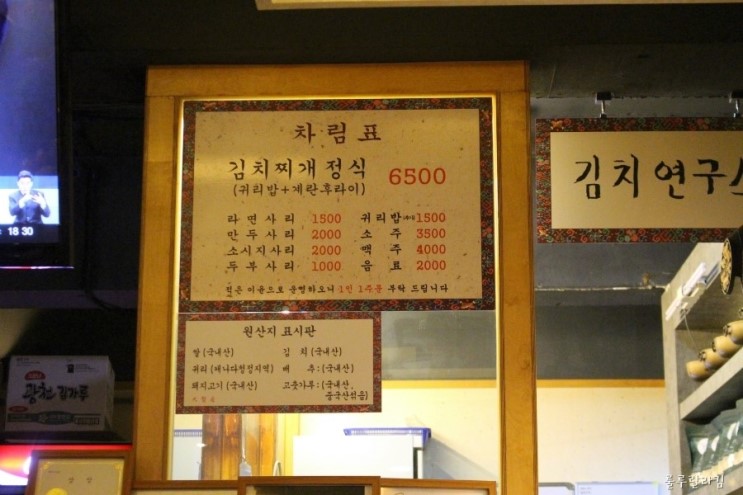 차림표
김치찌개정식 6500
(귀리밥+계란후라이)
라면사리 1500 귀리밥 1500
만두사리 2000 소주 3500
소시지사리 2000 맥주 4000
두부사리 1000 음료 2000
1인 1주문 부탁 드립니다
김치연구소
원산지 표시판
쌀(국내산) 김치(국내산)
귀리(캐나다청정지역) 배추:(국내산)
돼지고기(국내산) 고춧가루:(국내산,
중국산섞음)
18 30
광천김가루
상장